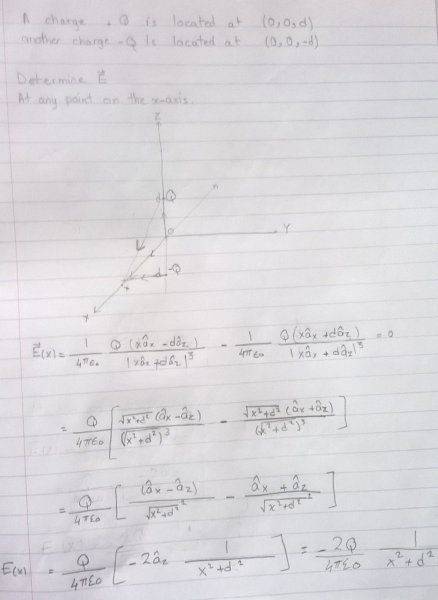 A charge +Q is located at (0,0,d)
another charge -Q is located at (0,0,-d)
Determine E⃗
At any point on the x-axis.
Z
d Q
n
0
Y
-d -Q
x
x
E⃗(x) = 1/4πε₀ Q(xâₓ - dâ_z)/|xâₓ + dâ_z|³ - 1/4πε₀ Q(xâₓ + dâ_z)/|xâₓ + dâ_z|³ = 0
= Q/4πε₀ [ √x²+d² (âₓ - â_z)/(√x²+d²)³ - √x²+d² (âₓ + â_z)/(√x²+d²)³ ]
= Q/4πε₀ [ (âₓ - â_z)/√x²+d²² - âₓ + â_z/√x²+d²² ]
E(x) = Q/4πε₀ [ -2â_z 1/x²+d² ] = -2Q/4πε₀ 1/x²+d²